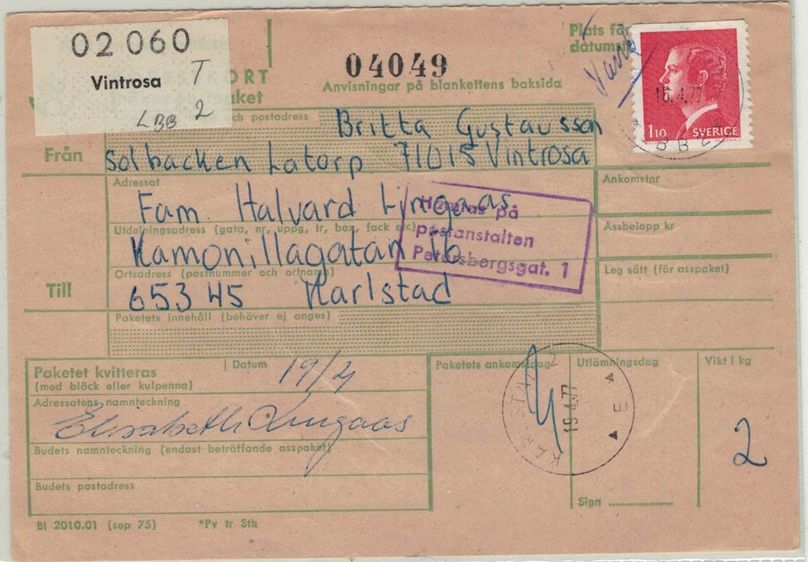 02 060
Vintrosa T
LBB 2
KORT
aket
04049
Anvisningar på blankettens baksida
Plats för
datumst
16.4.77
LBB 2
1 10 SVERIGE
och postadress
Från
Britta Gustavsson
Solbacken Latorp 71015 Vintrosa
Adressat
Fam. Halvard Lingaas
Utdelningsadress (gata, nr, uppg, tr, box, fack etc)
Kamonillagatan 16
Ortsadress (postnummer och ortnamn)
Till
653 45 Karlstad
Paketets innehåll (behöver ej anges)
Hämtas på
postanstalten
Petersbergsgat. 1
Ankomstnr
Assbelopp kr
Leg sätt (för asspaket)
Paketet kvitteras
(med bläck eller kulpenna)
Datum
19/4
Adressatens namnteckning
Elisabeth Lingaas
Budets namnteckning (endast beträffande asspaket)
Budets postadress
Paketets ankomstdag
Utlämningsdag
Vikt i kg
KARLSTAD 2
19.4.77
E
2
Sign
Bl 2010.01 (sep 75) *Pv tr Sth